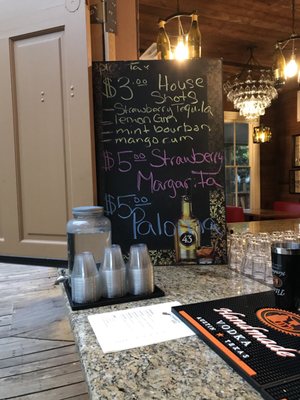 $3.00 House
Shots
Strawberry Tequila
lemon Gin
mint bourbon
mango rum
$5.00 Strawberry
Margarita
$5.00
Paloma
43
Handmade
VODKA
AUSTIN ★ TEXAS